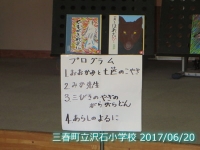 プログラム
1. おおかみと七匹のこやぎ
2. みか先生
3. 三びきのやぎの
がらがらどん
4. あらしのよるに
三春町立沢石小学校 2017/06/20